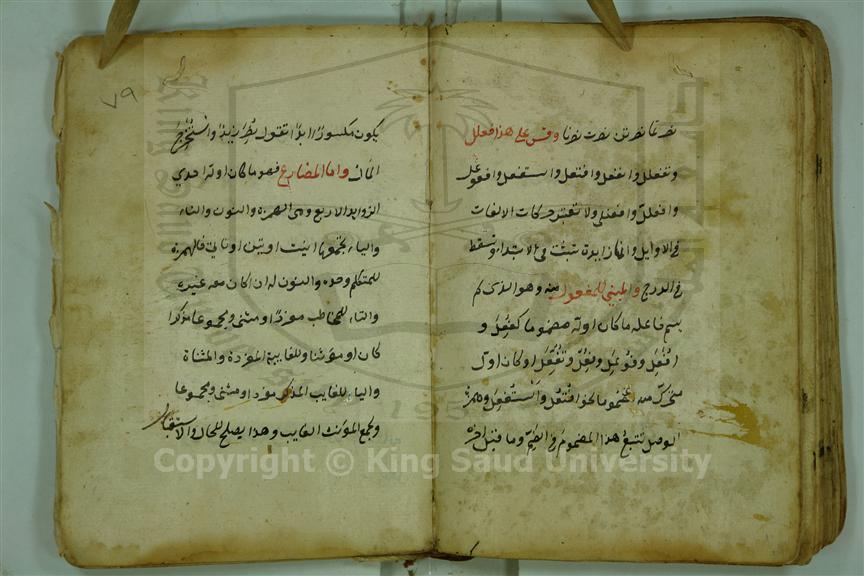 نصرتما نصرتن نصرت نصرنا وقس على هذا فعلل
وتفعلل وانفعل وافتعل واستفعل وافعوعل
وافعلل وافعنلى ولا تعتبر حركات الالفات
فى الاوايل فانها زايدة تثبت فى الابتداء وتسقط
فى الدرج والمبني للمفعول منه وهو الذى لم
يسم فاعله ما كان اوله مضموما كفعل و
افعل وفوعل وفعل وتفعل او كان اول
متحرك منه مضموما نحو افتعل واستفعل وهمزة
الوصل تتبع هذا المضموم فى الضم وما قبل اخره
٧٩
يكون مكسورا ابدا تقول نصر زيد واستخرج
المال واما المضارع فهو ما كان اوله احدى
الزوايد الاربع وهى الهمزة والنون والتاء
والياء يجمعها انيت او نأتى فالهمزة
للمتكلم وحده والنون له ان كان معه غيره
والتاء للمخاطب مفردا او مثنى ومجموعا مذكرا
كان او مؤنثا وللغايبة المفردة والمثناة
والياء للغايب المذكر مفردا او مثنى ومجموعا
ولجمع المؤنث الغايب وهذا يصلح للحال والاستقبال
Copyright © King Saud University